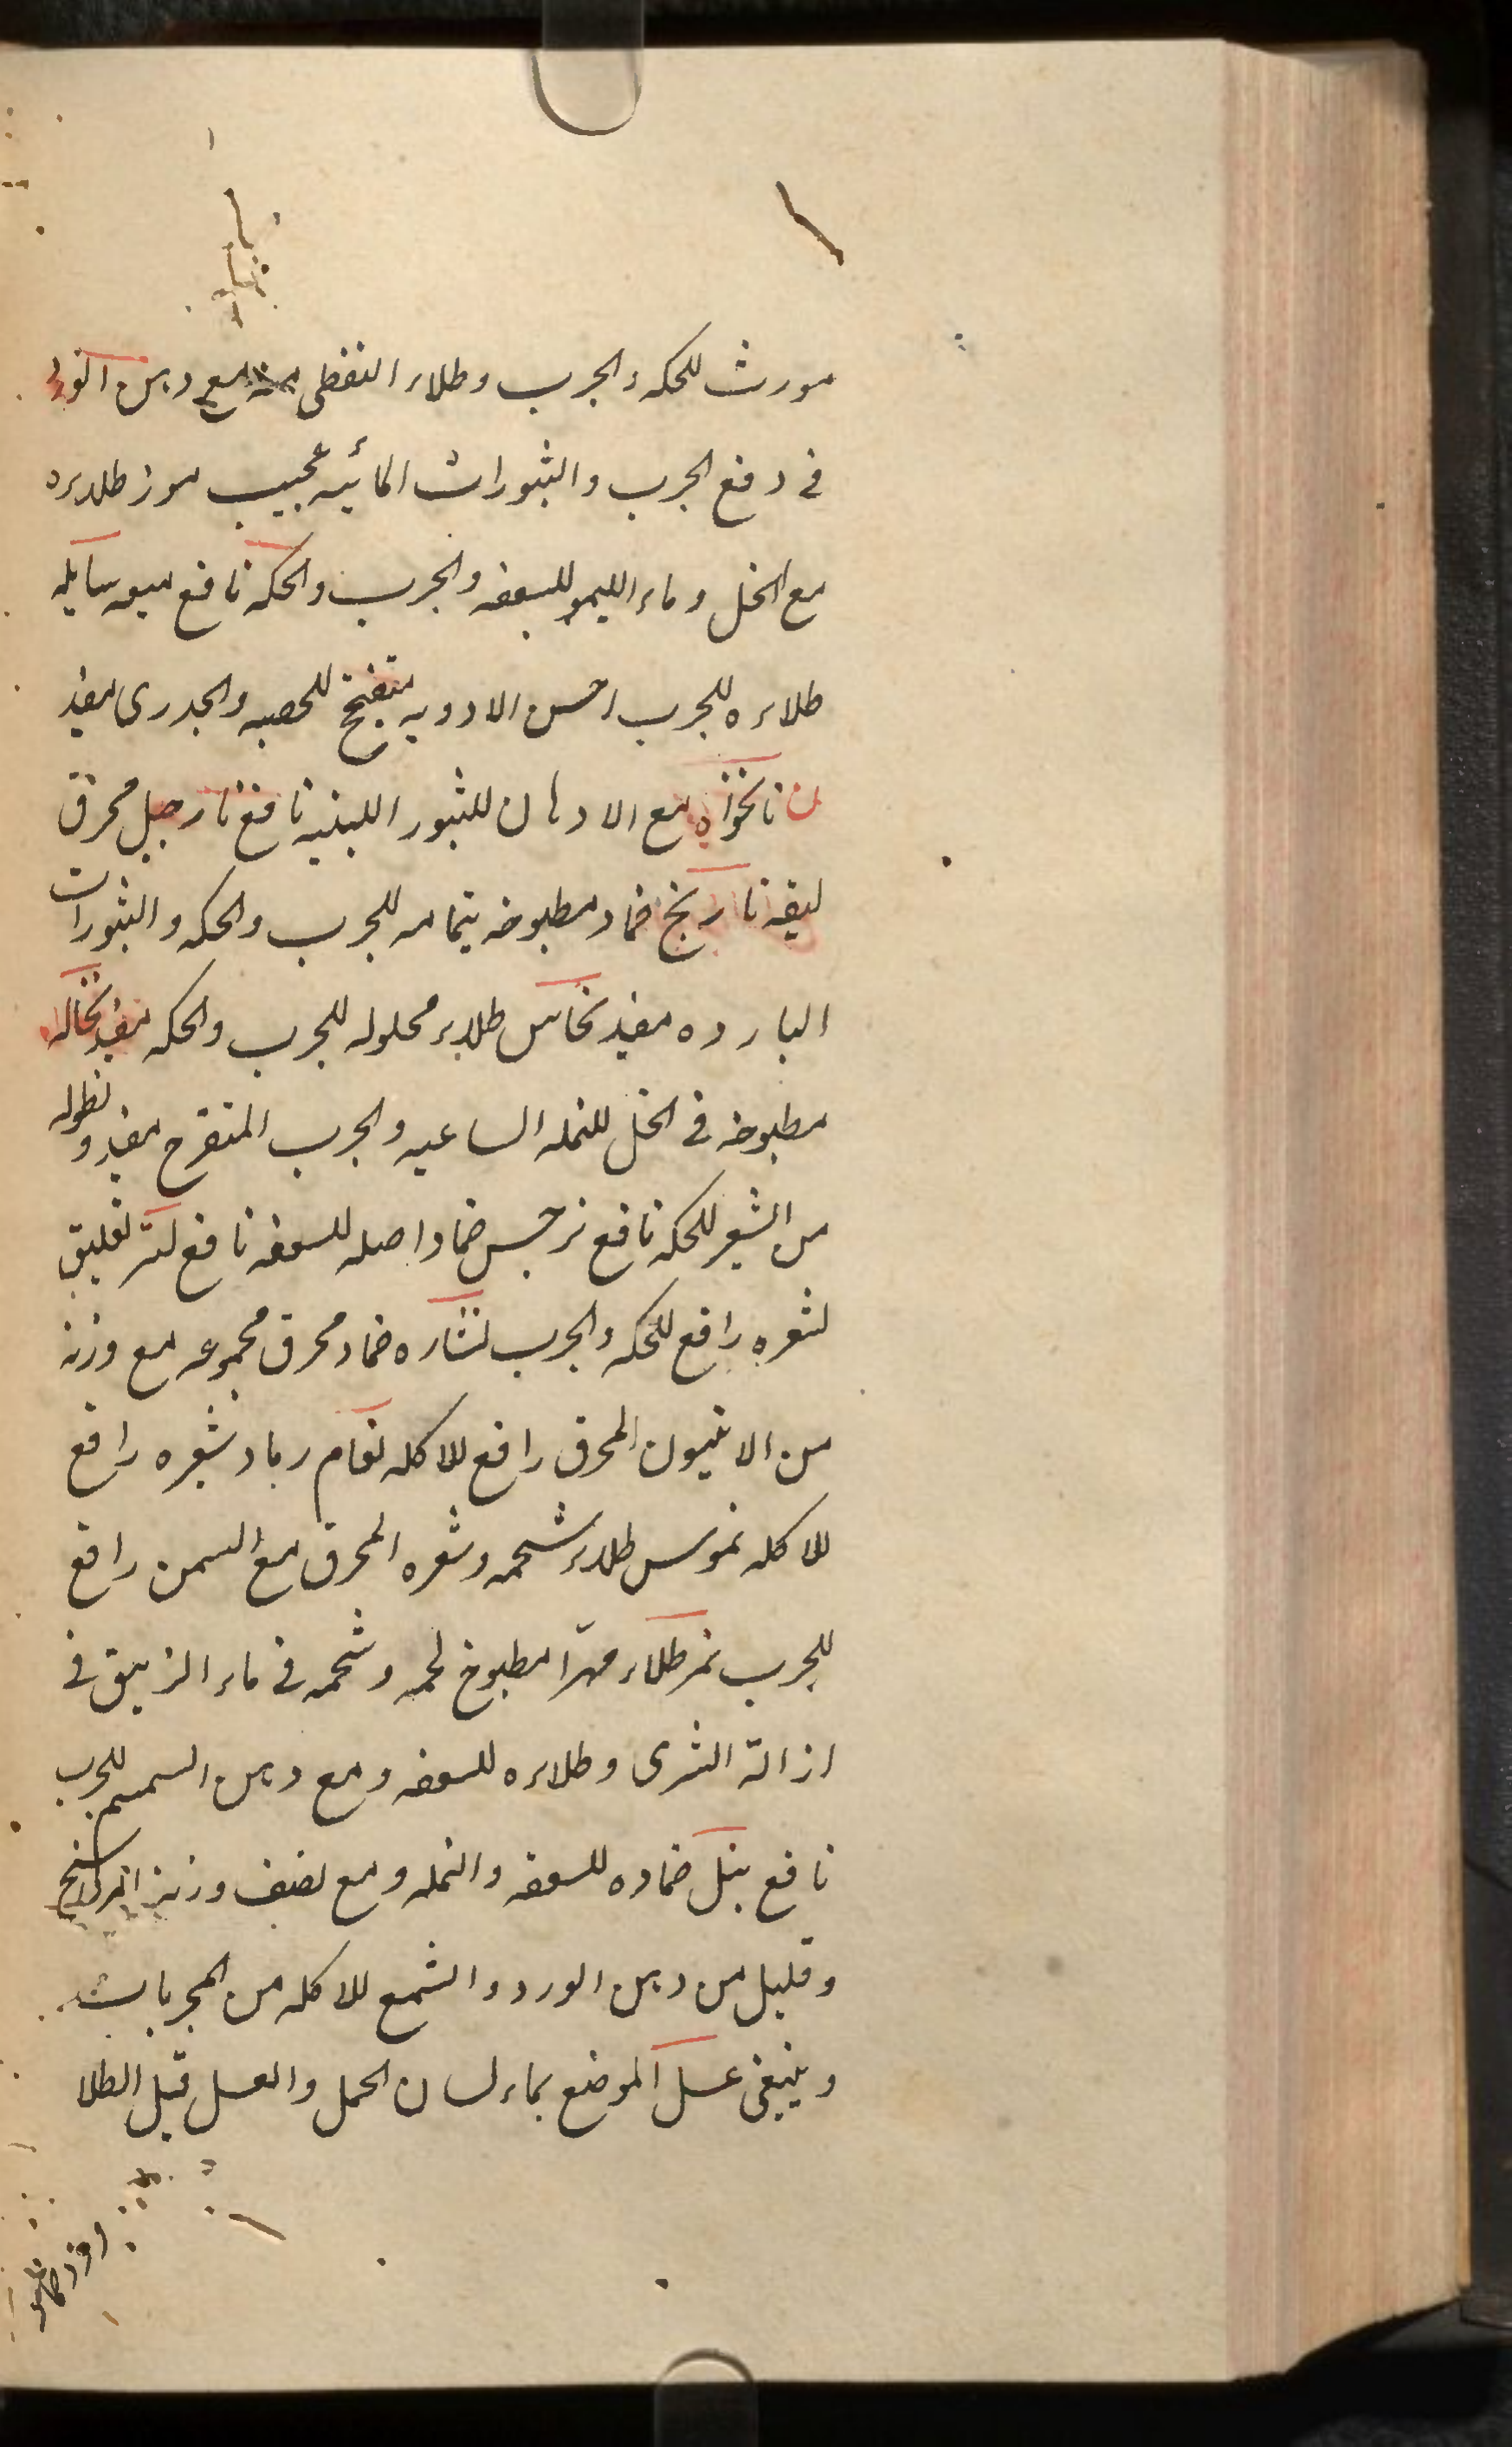 مورث للحكه والجرب وطلاء النفطى مع دهن الورد
فى دفع الجرب والبثورات المائيه عجيب موز طلاءه
مع الخل وماء الليمو للسعفه والجرب والحكه نافع ميعه سايله
طلاءه للجرب احسن الادويه للحصبه والجدرى مفيد
ن نانخواه مع الادهان للبثور اللبنيه نافع نارجيل محرق
ليفه نارنج ضماد مطبوخه بتمامه للجرب والحكه والبثورات
البارده مفيد نحاس طلاء محلوله للجرب والحكه مفيد نخاله
مطبوخه فى الخل للنمله الساعيه والجرب المتقرح مفيد ونطوله
من الشعير للحكه نافع نرجس ضماد اصله للسعفه نافع نسر تعليق
شعره رافع للحكه والجرب نشاره ضماد محرق مجموعه مع وزنه
من الانيسون المحرق رافع للاكله نعام رماد شعره رافع
للاكله نموس طلاء شحمه وشعره المحرق مع السمن رافع
للجرب نمر طلاء مهرّا مطبوخ لحمه وشحمه فى ماء الزيبق فى
ازالة الشرى وطلاءه للسعفه ومع دهن السمسم للجرب
نافع نيل ضماده للسعفه والنمله ومع نصف وزنه المرداسنج
وقليل من دهن الورد والشمع للاكله من المجربات
وينبغى غسل الموضع بماء لسان الحمل والعسل قبل الطلا